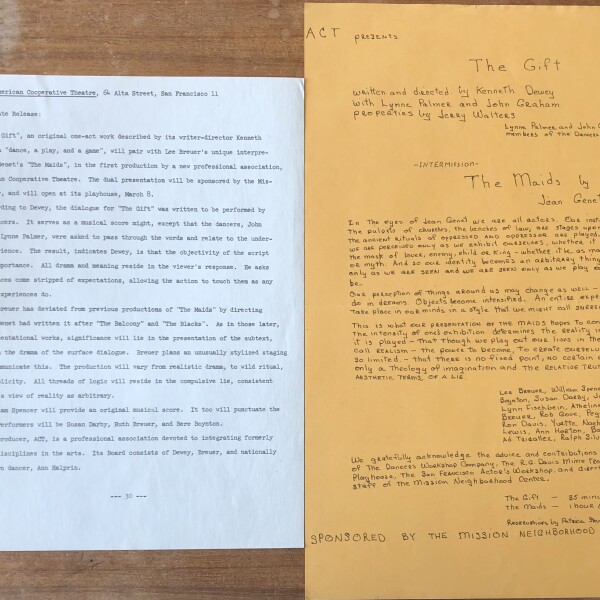 merican Cooperative Theatre, 64 Alta Street, San Francisco 11
ate Release:
Gift", an original one-act work described by its writer-director Kenneth
a "dance, a play, and a game", will pair with Lee Breuer's unique interpre-
Genet's "The Maids", in the first production by a new professional association,
an Cooperative Theatre. The dual presentation will be sponsored by the Mis-
y, and will open at its playhouse, March 8.
rding to Dewey, the dialogue for "The Gift" was written to be performed by
ncers. It serves as a musical score might, except that the dancers, John
Lynne Palmer, were asked to pass through the words and relate to the under-
ience. The result, indicates Dewey, is that the objectivity of the script
portance. All drama and meaning reside in the viewer's response. He asks
nces come stripped of expectations, allowing the action to touch them as any
xperiences do.
reuer has deviated from previous productions of "The Maids" by directing
Genet had written it after "The Balcony" and "The Blacks". As in those later,
entational works, significance will lie in the presentation of the subtext,
n the drama of the surface dialogue. Breuer plans an unusually stylised staging
mmunicate this. The production will vary from realistic drama, to wild ritual,
plicity. All threads of logic will reside in the compulsive lie, consistent
s view of reality as arbitrary.
am Spencer will provide an original musical score. It too will punctuate the
erformers will be Susan Darby, Ruth Breuer, and Bere Boynton.
roducer, ACT, is a professional association devoted to integrating formerly
disciplines in the arts. Its Board consists of Dewey, Breuer, and nationally
n dancer, Ann Halprin.
--- 30 ---
ACT PRESENTS
The Gift
written and directed by Kenneth Dewey
with Lynne Palmer and John Graham
properties by Jerry Walters
Lynne Palmer and John G
members of the Dancers
-INTERMISSION-
The Maids by
Jean Genet
In the eyes of Jean Genet we are all actors. Our inst
The pulpits of churches, the benches of law, are stages upon
the ancient rituals of oppressed and oppressor are played.
we are perceived only as we exhibit ourselves, whether it
the mask of lover, enemy, child or king - whether it be as ma
or myth. And so our identity becomes an arbitrary thing
only as we are seen and we are seen only as we play
be.
Our perception of things around us may change as well -
do in dreams. Objects become intensified. An entire expe
take place in our minds in a style that we might call surre
This is what our presentation of THE MAIDS hopes to
the intensity of one's exhibition determines the reality
it is played - that though we play out our lives in the
call realism - the power to become, to create ourselve
so limited. - that there is no fixed point, no certain
only a theology of imagination and the relative trut
aesthetic terms of a lie.
Lee Breuer, William Spenc
Boynton, Susan Darby, J
Lynn Fischbein,
Breuer, Rob Gove, Peg
Ron Davis, Yvette
Lewis, Ann Horton, Ba
Ralph Sil
We gratefully acknowledge the advice and contributions
of The Dancers Workshop Company, The R.G. Davis Mime
Playhouse, The San Francisco Actor's Workshop, and
staff of the Mission Neighborhood Center.
The Gift - 35 min
The Maids - 1 hour
Reservations by Patricia
SPONSORED BY THE MISSION NEIGHBORHOOD